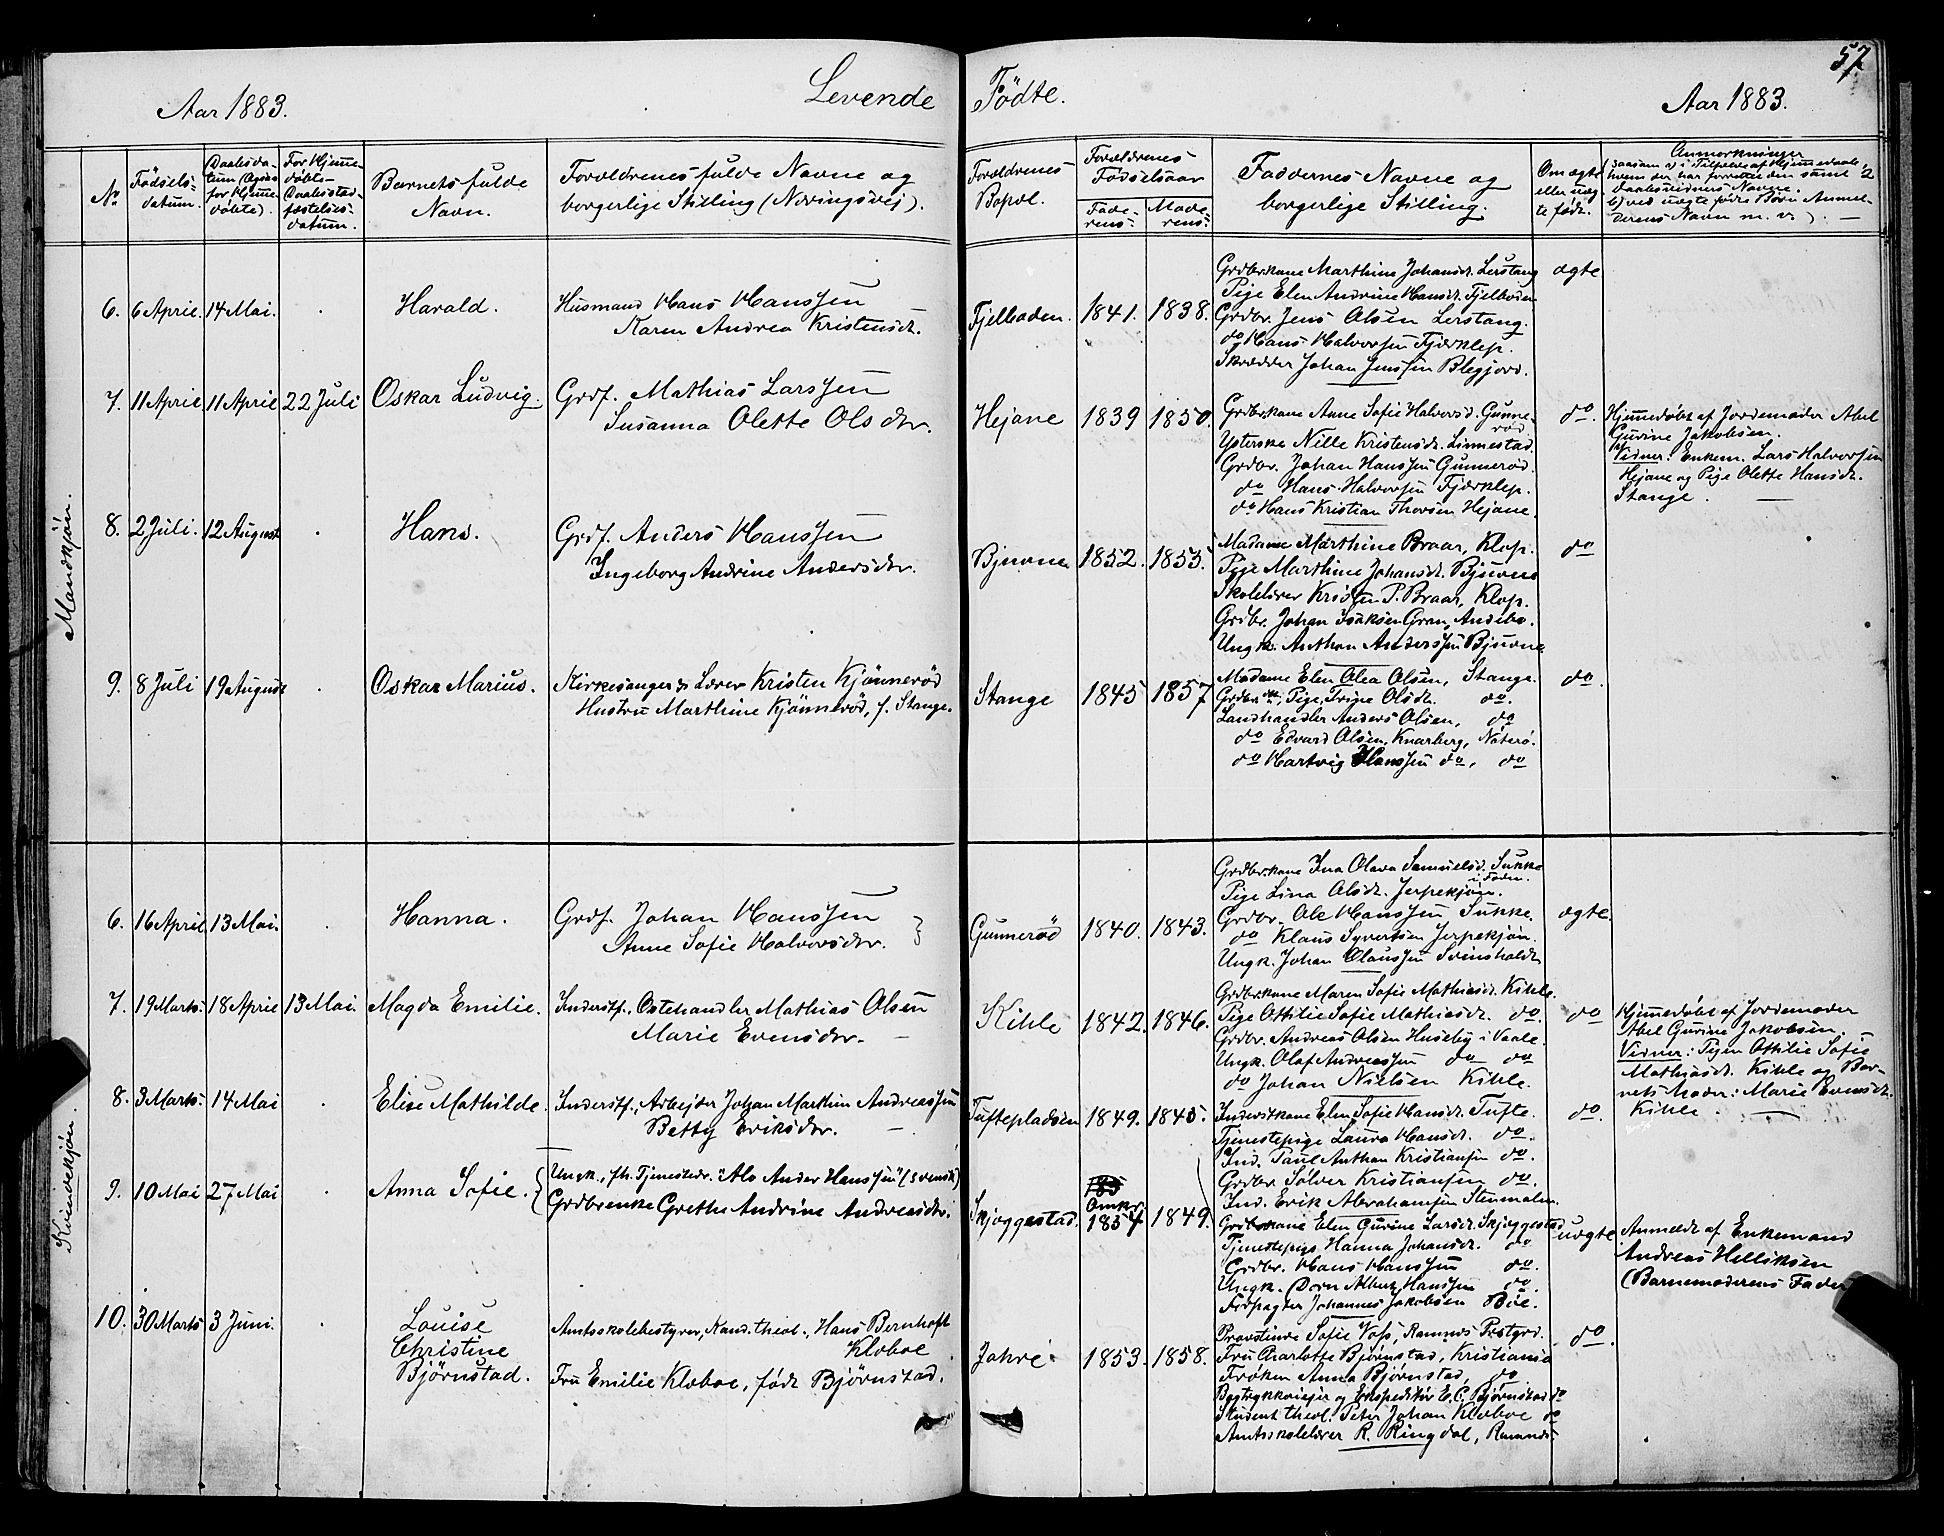 57
Aar 1883.
Levende Fødte.
Aar 1883.
No
Fødsels-
datum.
Daabsda-
tum (Ogsaa
for Hjemme-
døbte).
For Hjemme-
døbte
Daabsstad-
fæstelses-
datum.
Barnets fulde
Navn.
Forældrenes fulde Navne og
borgerlige Stilling (Næringsvej).
Forældrenes
Bopæl.
Forældrenes
Fødselsaar
Fade-
rens:
Mode-
rens:
Faddernes Navne og
borgerlige Stilling.
Om ægte
eller uæg-
te født.
Anmærkninger
Mandkjøn.
6. 6 April. 14 Mai.
Harald.
Husmand Hans Hanssen
Karen Andrea Kristensdt.
Fjelboden. 1841. 1838.
Grdbrkone Marthine Johansdt. Lerstang
Pige Elen Andrine Hansdt. Fjelboden
Grdbr. Jens Olsen Lerstang.
do Hans Halvorsen Fjærklep.
Skrædder Johan Jenssen Blegjord.
ægte
7. 11 April. 11 April 22 Juli
Oskar Ludvig.
Grdf. Mathias Larssen
Susanna Olette Olsdtr.
Hejane 1839 1850.
Grdbrkone Anne Sofie Halvorsd. Gunne-
rød
Ysterske Nille Kristensdt. Linnestad.
Grdbr. Johan Hanssen Gunnerød.
do Hans Halvorsen Fjærklep.
do Hans Kristian Thorsen Hejane.
do.
Hjemmedøbt af Jordemoder Abel
Gurine Jakobsen.
Vidner: Enkem. Lars Halvorsen
Hejane og Pige Olette Hansdt.
Stange.
8. 2 Juli. 12 August
Hans.
Grdf. Anders Hanssen
Ingeborg Andrine Andersdtr.
Bjuvne 1852. 1855.
Madame Marthine Braar, Klop.
Pige Marthine Johansdt. Bjuvne
Skolelærer Kristen P. Braar, Klop.
Grdbr. Johan Isaksen Gran, Andebo.
Ungk. Anthon Anderssen Bjuvne
do
9. 8 Juli 19 August
Oskar Marius.
Kirkesanger og Lærer Kristen Kjønnerød
Hustru Marthine Kjønnerød, f. Stange.
Stange 1845 1857
Madame Elen Olea Olsen, Stange.
Grdbr. Pige, Trine Olsdt. do.
Landhandler Anders Olsen, do
do Edvard Olsen, Knarberg, Nøterø.
do Hartvig Hanssen do, do
do.
Kvindekjøn.
6. 16 April 13 Mai.
Hanna.
Grdf. Johan Hanssen
Anne Sofie Halvorsdtr.
Gunnerød 1840. 1843.
Grdbrkone Ina Olava Samuelsd. Sukke
i Foden.
Pige Lina Olsdt. Jerpekjøn.
Grdbr. Ole Hanssen Sukke.
do Klaus Syvertsen Jerpekjøn.
Ungk. Johan Olaussen Svinsholdt
ægte.
7. 19 Marts. 18 April 13 Mai.
Magda Emilie.
Inderstf., Ostehandler Mathias Olsen
Marie Evensdtr.
Kihle 1842. 1846.
Grdbrkone Maren Sofie Mathiasdt. Kihle.
Pige Ottilie Sofie Mathiasdt. do.
Grdbr. Andreas Olsen Huseby i Vaale
Ungk. Olaf Andreassen do do
do Johan Nielsen Kihle.
do
Hjemmedøbt af Jordemoder
Abel Gurine Jakobsen.
Vidner: Pigen Ottilie Sofie
Mathiasdt. Kihle og Bar-
nets Moder: Marie Evensdt.
Kihle.
8. 3 Marts. 14 Mai
Elise Mathilde.
Inderstf., Arbejder Johan Marthin Andreassen
Betty Eriksdtr.
Tuftepladsen 1849. 1845.
Inderstkone Elen Sofie Hansdt. Tufte.
Tjenestepige Laura Hansdt. do.
Ind. Paul Anthon Kristiansen do.
Grdbr. Sølver Kristiansen do.
Ind. Erik Abrahamsen Stenmalm.
do.
9. 10 Mai 27 Mai
Anna Sofie.
Ungk., fh. Tjenestedr. "Alo Ander Hanssen" (svensk)
Grdbrenke Grethe Andrine Andreasdtr.
Skjæggestad. Omkr. 1854 1849.
Grdbrkone Elen Gurine Larsdt. Skjæggestad
Tjenestepige Hanna Johansdt. do
Grdbr. Hans Hanssen do.
Ungk. Albert Hanssen do.
Forpagter Johannes Jakobsen Bøe.
uægte
Anmeldt af Enkemand
Andreas Helliksen
(Barnemoderens Fader
10. 30 Marts 3 Juni.
Louise
Christine
Bjørnstad.
Amtsskolebestyrer, Kand. theol., Hans Bernhoft
Kloboe
Fru Emilie Kloboe, født Bjørnstad.
Jahre 1853. 1858.
Provstinde Sofie Voss, Ramnes Prstgrd.
Fru Charlotte Bjørnstad, Kristiania
Frøken Anna Bjørnstad, do.
Bogtrykkeriejer og Ekspeditør E. C. Bjørnstad do
Student theol. Peter Johan Kloboe do
Amtsskolelærer R. Ringdal, Ramnes.
do.